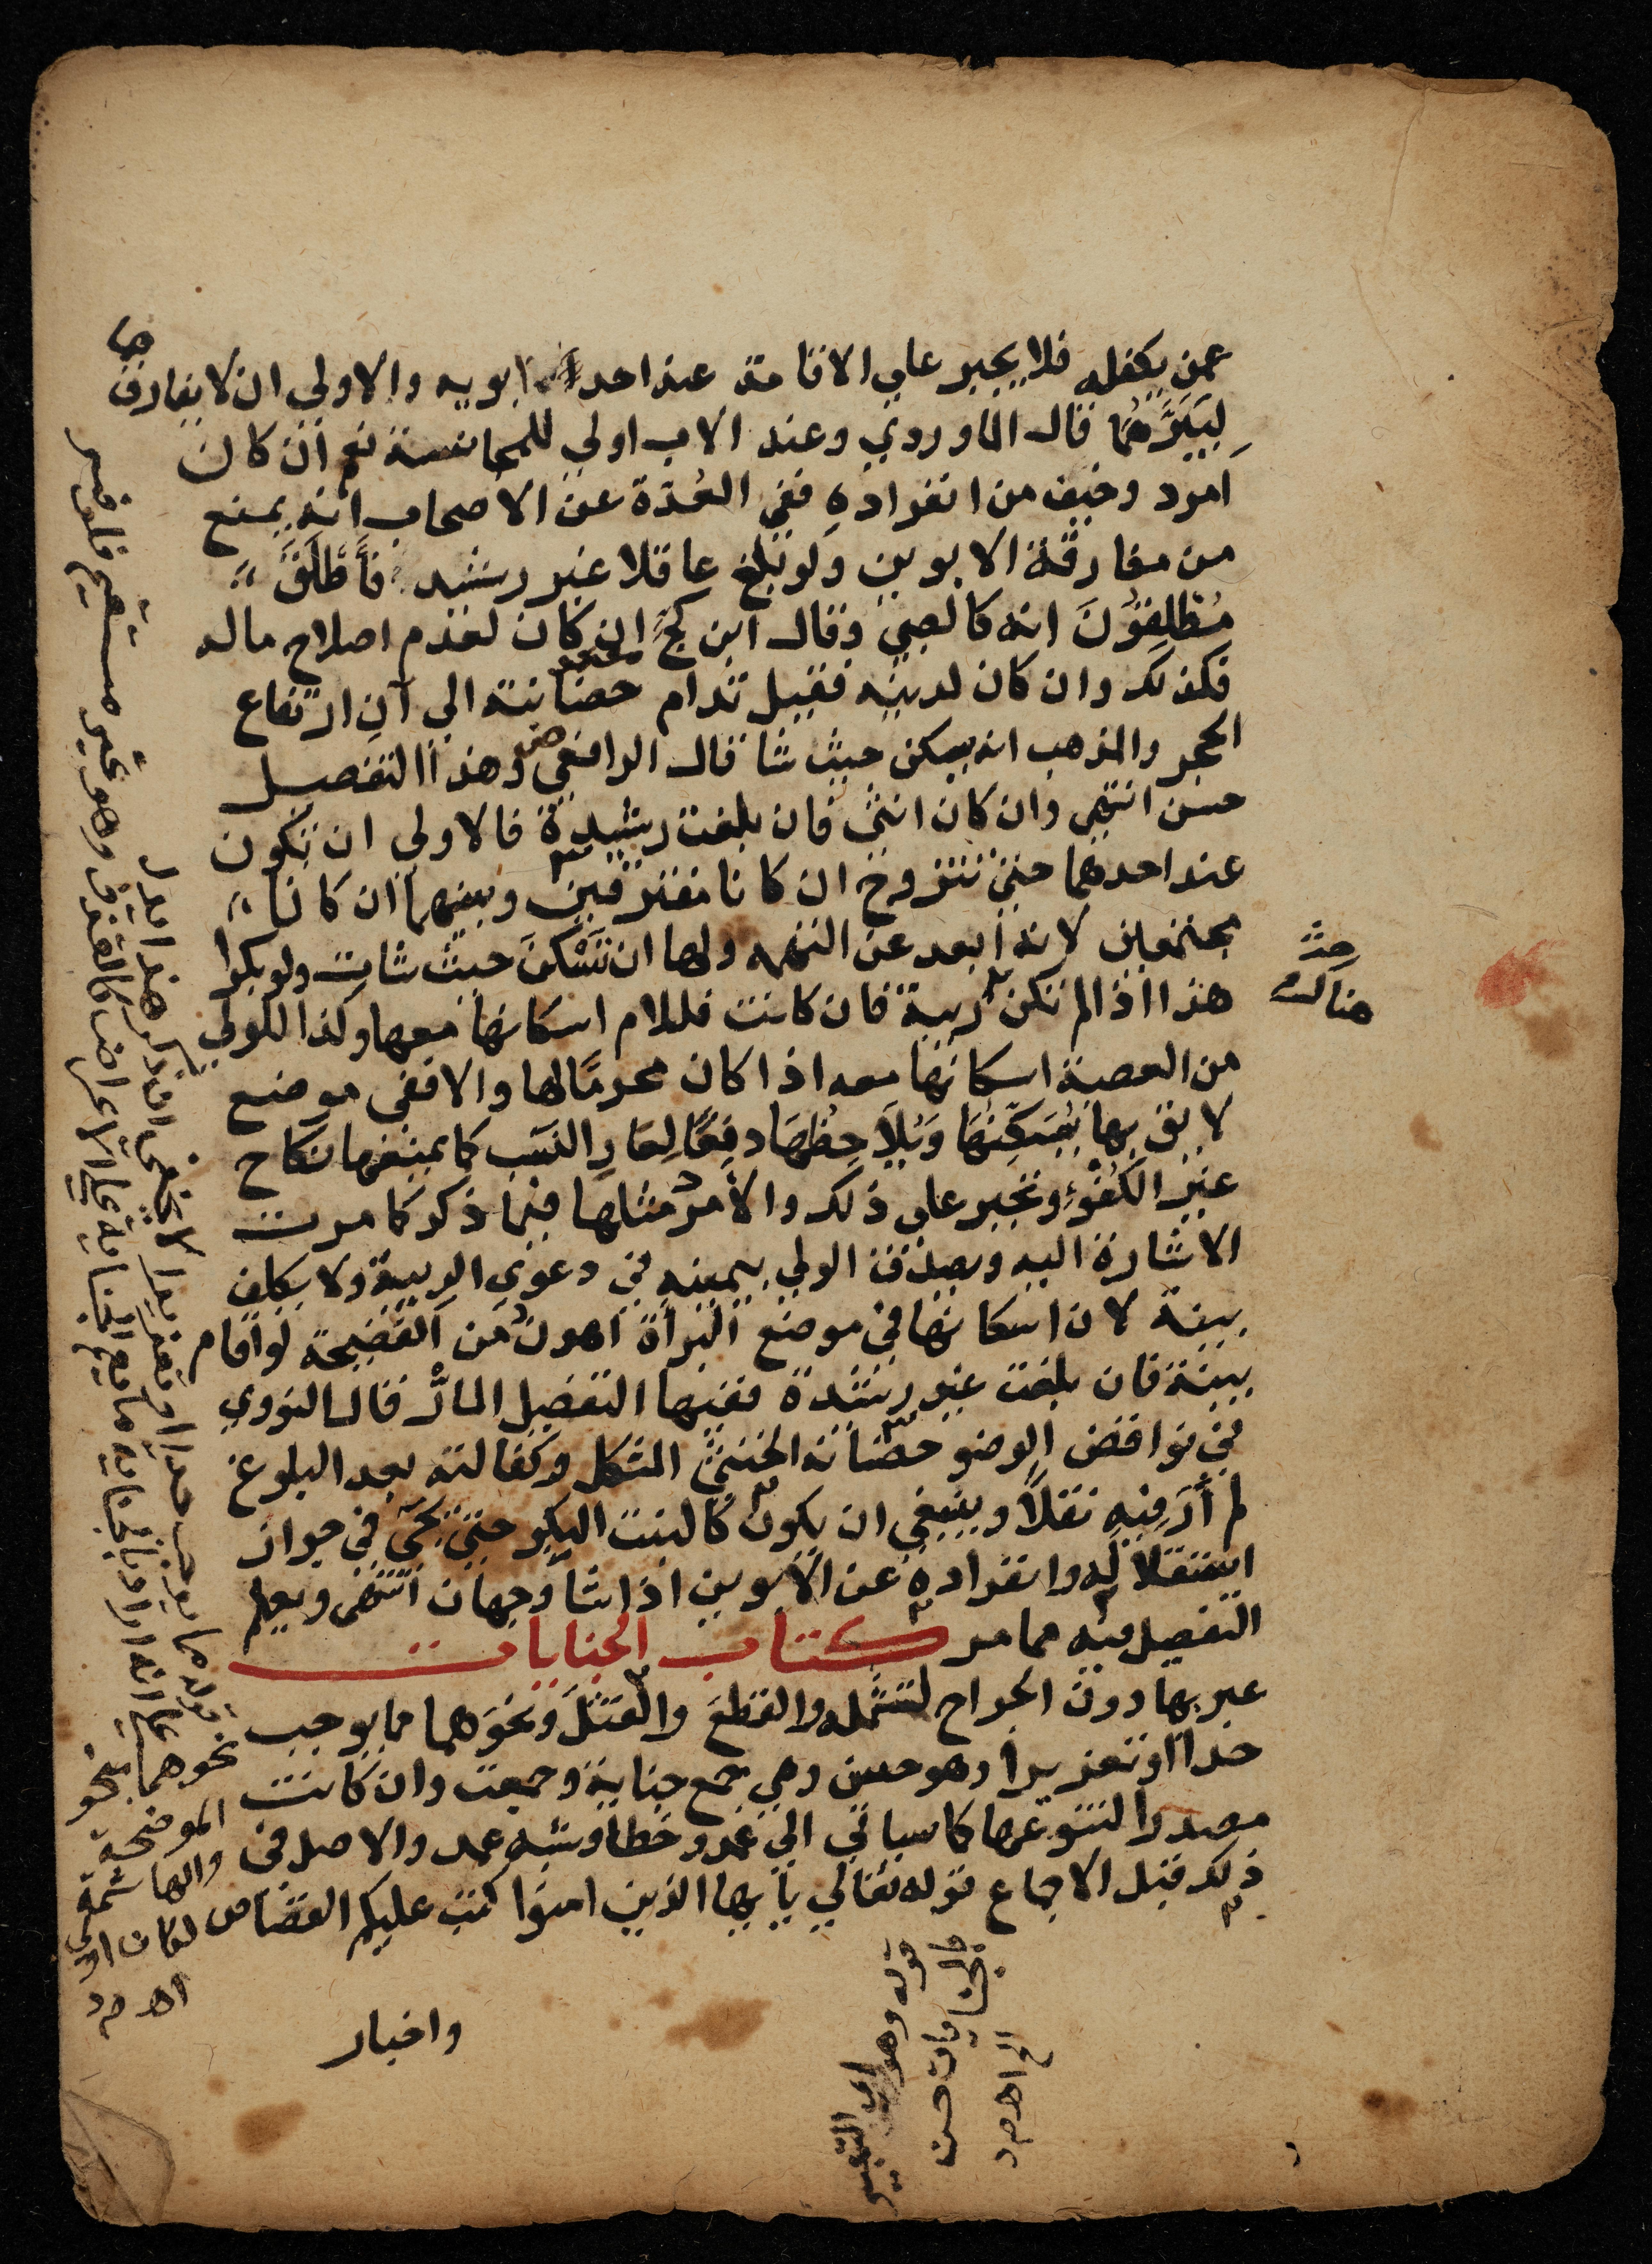 عمن يكفله فلا يجبر علي الاقامة عند احد ابويه والاولي ان لا يفارقهما
لِيَبَرَّهُمَا قال الماوردي وعند الاب اولي للمجانسة نعم ان كان
امرد وخيف من انفراده ففي العُدّة عن الاصحاب انه يمنع
من مفارقة الابوين ولو بلغ عاقلا غير رشيد فأَطْلَقَ
مُطْلِقُونَ انه كالصبي وقال ابن كَجٍّ ان كان لعدم اصلاح ماله
فكذلك وان كان لدينه فقيل تدام حضانته الي آنِ ارتفاع
الحجر والمذهب انه يسكن حيث شا قال الرافعي وهذا التفصيل
حسن انتهي وان كان انثي فان بلغت رشيدة فالاولي ان تكون
عند احدهما حتي تتزوج ان كانا مفترقين وبينهما ان كانا
مجتمعين لانه ابعد عن التهمه ولها ان تَسْكنَ حيث شات ولو بكرا
هذا اذا لم تكن ريبة فان كانت فللام اسكانها معها وكذا للولي
من العصبة اسكانها معه اذا كان محرمًا لها والا ففي موضع
لايق بها يُسَكِّنُهَا وَيُلاَحِظُهَا دفعًا لِعَارِ النَسَب كما يمنعها نكاح
غير الكُفْؤِ وتجبر علي ذلك والامرد مثلها فيما ذكر كما مرت
الاشارة اليه ويصدق الولي بيمينه في دعوي الريبة ولا يكلف
بينة لان اسكانها في موضع البراة اهون من الفضيحة لو اقام
بينة فان بلغت غير رشيدة ففيها التفصيل المارُّ قال النووي
في نواقض الوضو حضانة الخنثي المشكل وكفالته بعد البلوغ
لم أَرَ فِيه نقلاً وينبغي ان يكون كالبنت البكر حتي يجي في جواز
استقلاله وانفراده عن الابوين اذا شا وجهان انتهي ويعلم
التفصيل فيه مما مر كتاب الجنايات
عبر بها دون الجراح لتشمله والقطع والقتلَ ونحوَهما مما يوجب
حدا او تعزيرا وهو حسن وهي جمع جناية وجمعت وان كانت
مصدرا لتنوعها كما سياتي الي عمد وخطا وشبه عمد والاصل في
ذلك قبل الاجماع قوله تعالي يا يها الذين امنوا كتب عليكم القصاص
واخبار
هنالك
قوله مما يوجب حدا او تعزيرا لا يخفي ان ذكر هذا
نحوهما بنحو
الموضحة
والهاشمة
لكان اولي
اهـ م د
قوله وهو اي التعبير
بالجنايات حسن
الخ اهـ م د